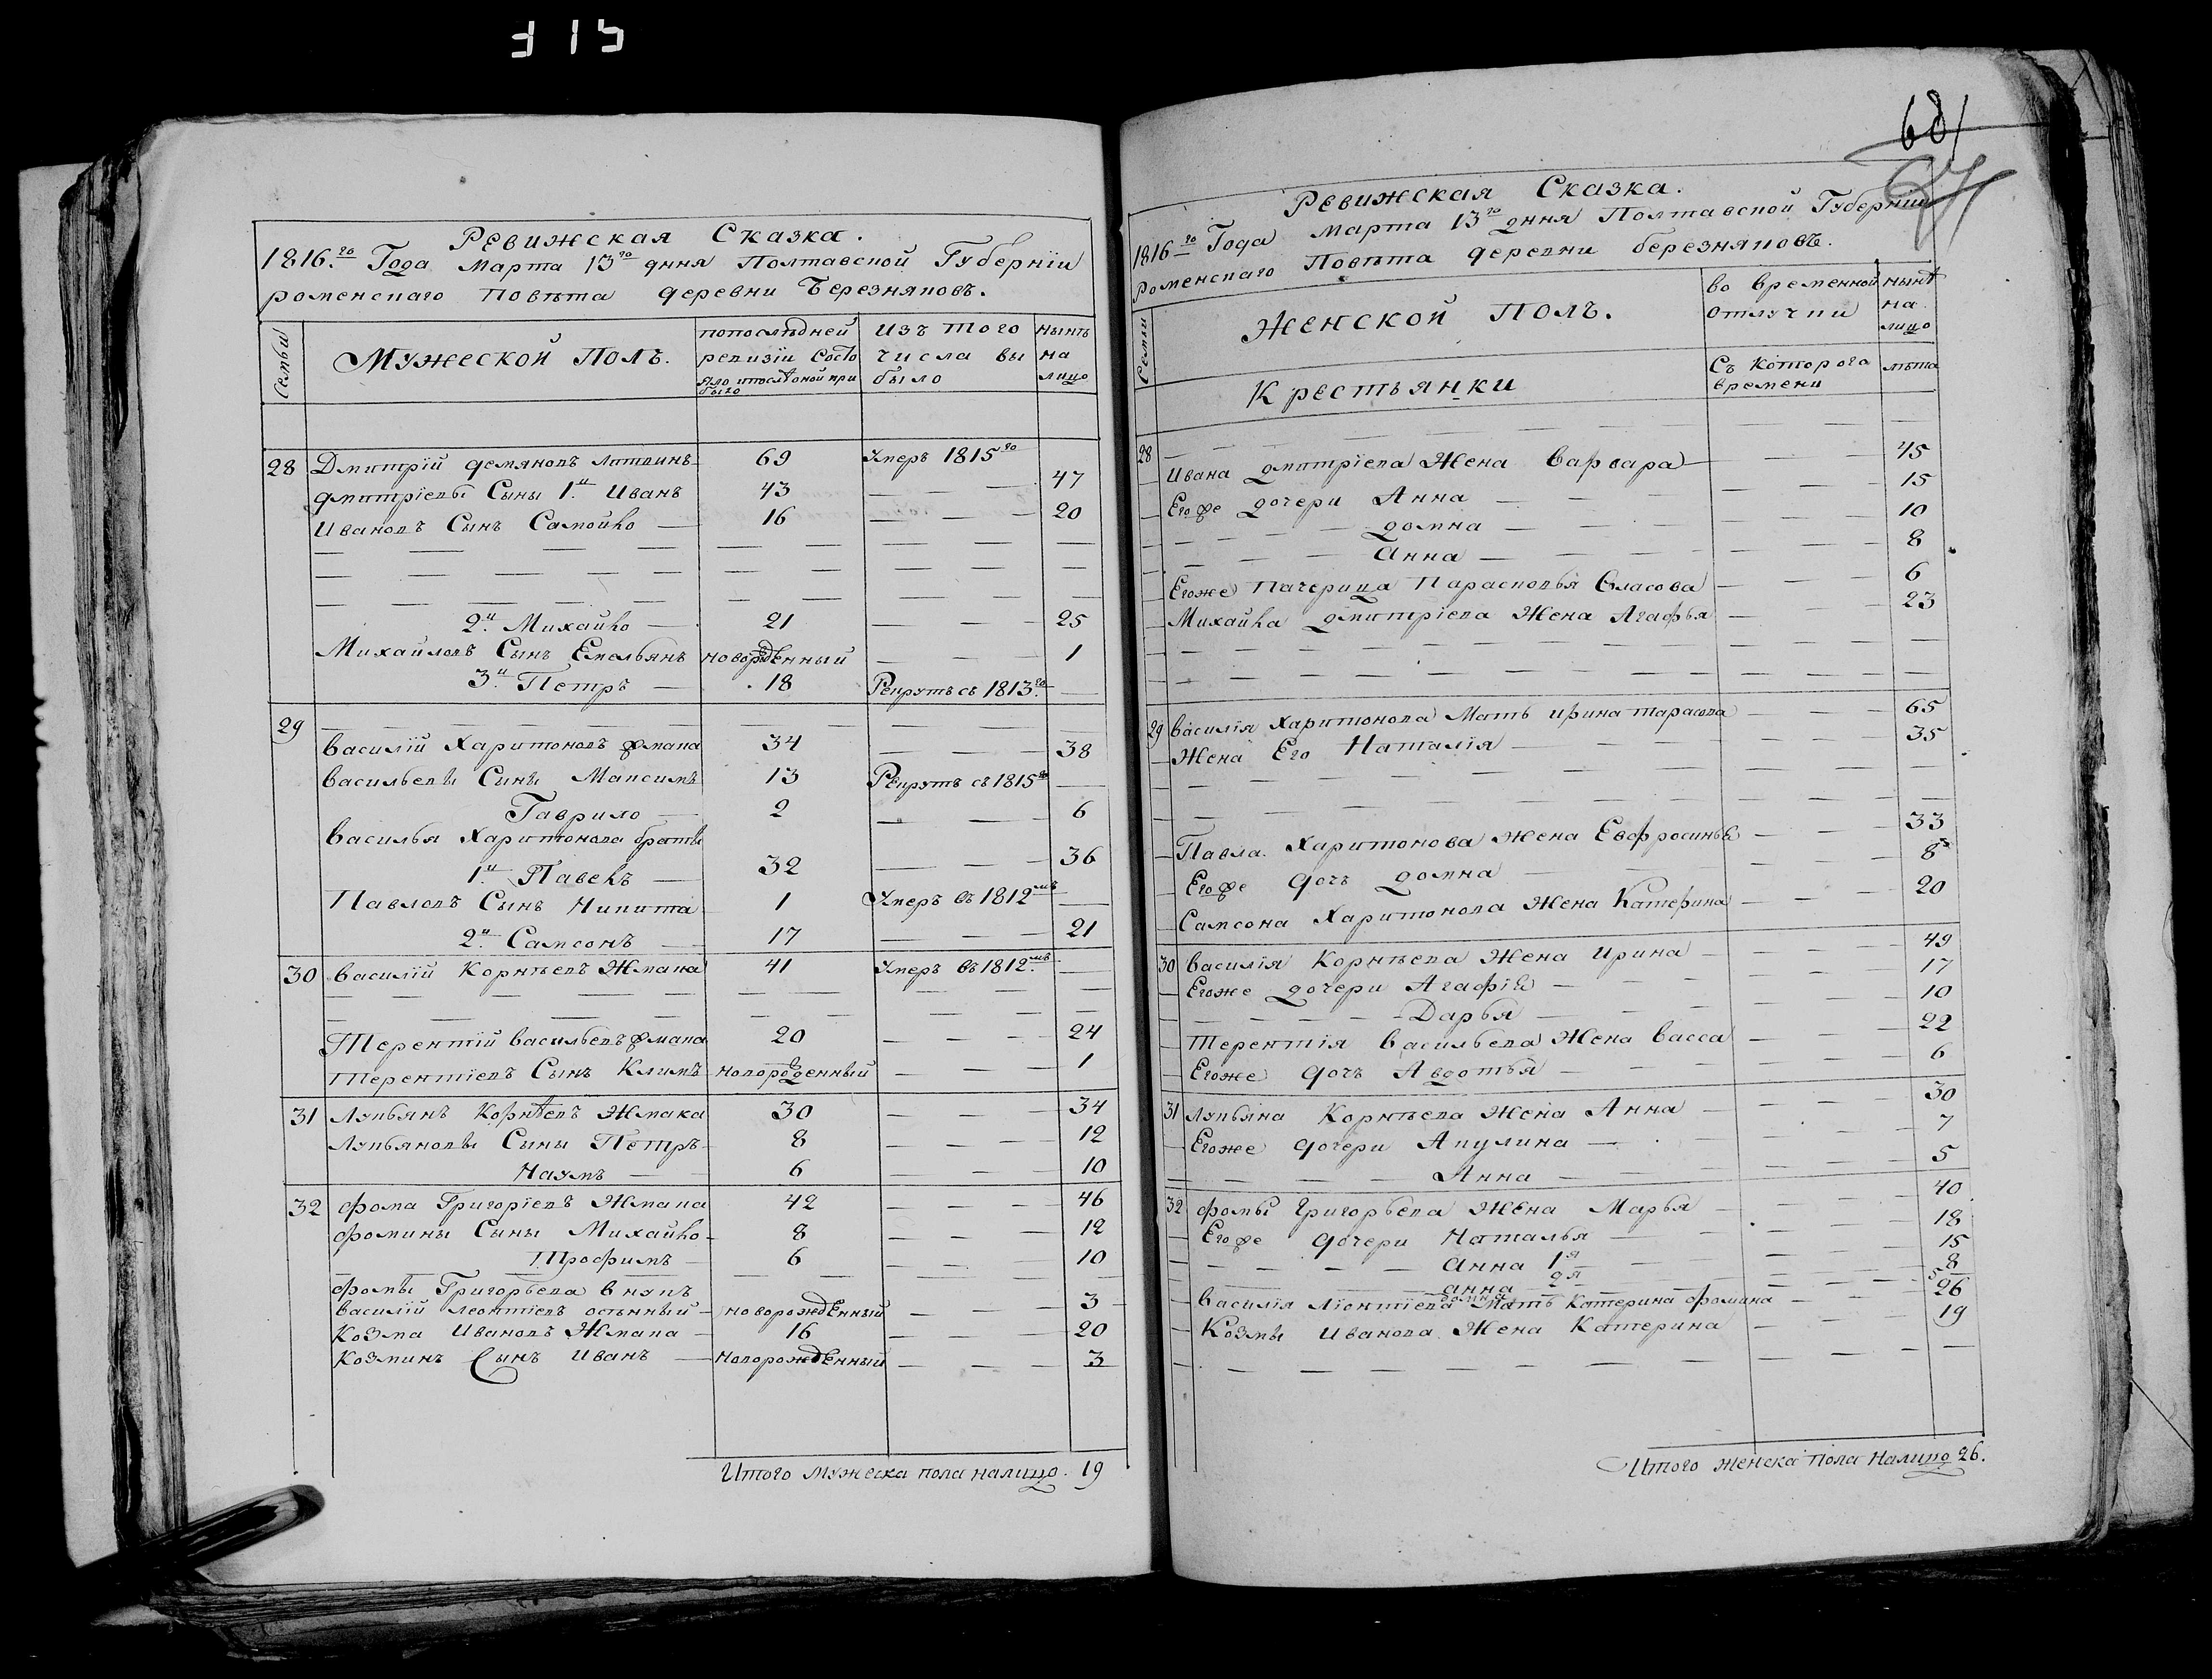 315
Ревижская Сказка.
1816.го Года марта 13го дння Полтавской Губерніи
роменскаго Повѣта деревни Березняковъ.
Семьи
Мужеской Полъ.
попослѣдней
ревизіи состо
яло ипослѣ оной при
было
Изъ того
числа вы
было
нынѣ
на
лицо
28 Дмитрій демяновъ 69 Умеръ 1815го
дмитріевы Сыны 1.й Иванъ 43 — — — 47
Ивановъ Сынъ Самойло — 16 — — — 20
2.й Михайло — 21 — — — 25
Михайловъ Сынъ Емельянъ новорожденный — — — 1
3.й Петръ — 18 Рекрутъ съ 1813.го —
29
василій Харитоновъ жмака 34 — — — 38
васильевы Сыны Максимъ 13 Рекрутъ съ 1815го —
Гаврило — 2 — — — 6
василья Харитонова братья
1.й Павелъ — 32 — — — 36
Павловъ Сынъ Никита 1 Умеръ въ 1812мъ —
2.й Самсонъ — 17 — — — 21
30 василій Корнѣевъ Жмака 41 Умеръ въ 1812.мъ —
Терентій васильевъ жмака 20 — — — 24
Терентіевъ Сынъ Климъ новорожденный — — — 1
31 Лукьянъ Корнѣевъ Жмака 30 — — — 34
Лукьяновы Сыны Петръ 8 — — — 12
Наумъ — 6 — — — 10
32 фома Григоріевъ Жмака 42 — — — 46
фомины Сыны Михайло 8 — — — 12
Трофимъ 6 — — — 10
фомы Григорьева внукъ
василій леонтіевъ новорожденный — — — 3
Козма Ивановъ Жмака — 16 — — — 20
Козминъ Сынъ Иванъ — новорожденный — — — 3
Итого мужеска пола налицо. 19
68
Ревижская Сказка.
1816го Года марта 13го дння Полтавской Губерніи
Роменскаго Повѣта деревни березняковъ.
Семьи
Женской Полъ.
Крестьянки
во временной
отлучки
Съ которого
времени
нынѣ
на
лицо
лѣта
28
Ивана дмитріева Жена варвара — 45
Егоже дочери Анна 15
домна — 10
Анна — 8
Егоже Пачерица Парасковья Власова — 6
Михайла дмитріева Жена Агафья — 23
29 василія Харитонова Мать ирина тарасова — 65
Жена Его Наталія — 35
Павла Харитонова Жена Евфросинья — 33
Егоже дочь домна — 8
Самсона Харитонова Жена Катерина — 20
30 василія Корнѣева Жена Ирина — 49
Егоже дочери Агафія — 17
Дарья — 10
Терентія васильева Жена васса — 22
Егоже дочь Авдотья — 6
31 Лукьяна Корнѣева Жена Анна — 30
Егоже дочери Акулина — 7
Анна — 5
32 фомы Григорьева Жена Марья — 40
Егоже дочери Наталья — 18
анна 1я — 15
анна 2я — 8
домна 5
василія Ліонтіева Мать Катерина фомина — 26
Козмы Иванова Жена Катерина — 19
Итого женска пола налицо 26.